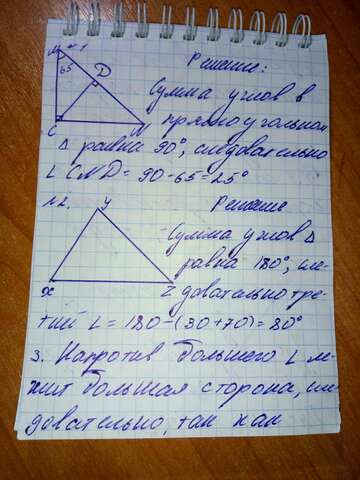 M №1
65
D
Решение:
Сумма углов в
C N прямоугольном
Δ равна 90°, следовательно
∠ CND = 90 - 65 = 25°
№2. Y Решение
Сумма углов Δ
равна 180°, сле-
X Z довательно тре-
тий ∠ = 180 - (30+70) = 80°
3. Напротив большего ∠ ле-
жит большая сторона, сле-
довательно, так как